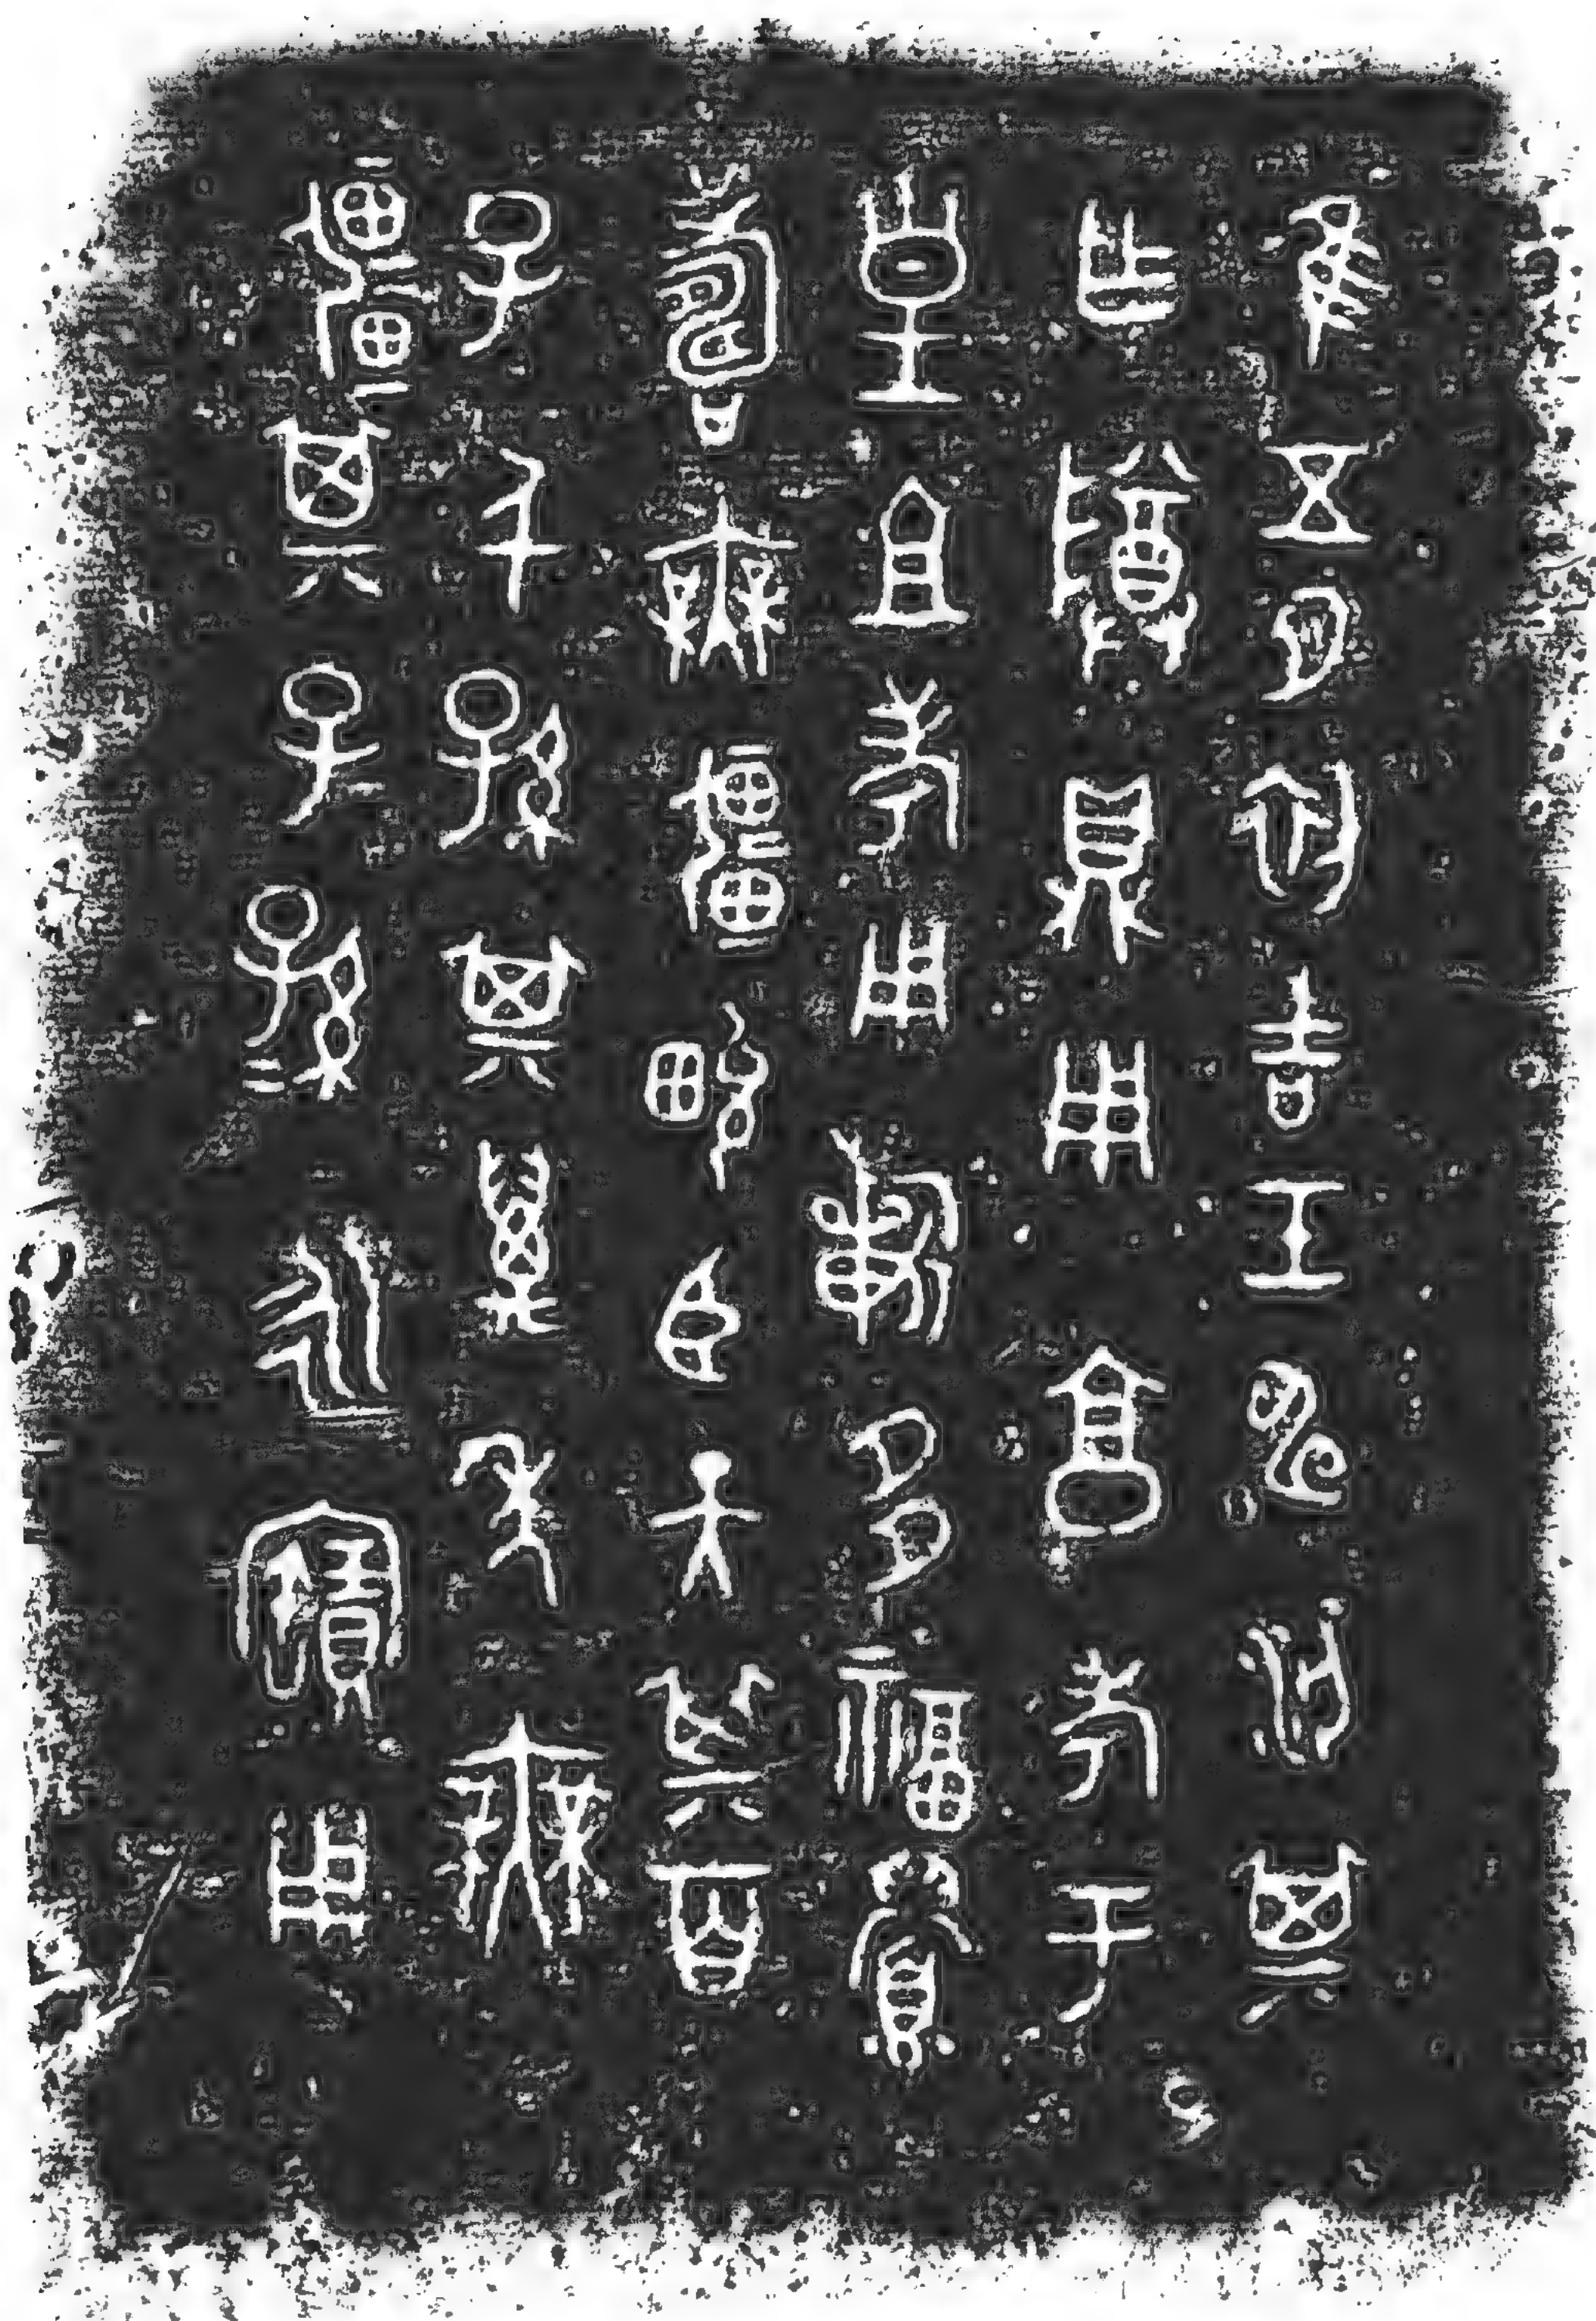 隹五月初吉壬申汈其
乍䵼鼎用亯孝于
皇且考用𣄨多福眉
壽無疆㽙臣天其百
子千孫其萬年無
疆其子孫=永寶用